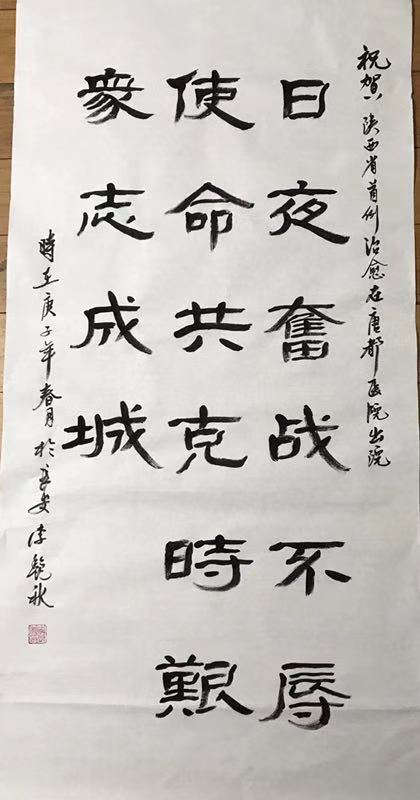 祝贺陕西省首例治愈在唐都医院出院
日夜奮战不辱
使命共克時艱
衆志成城
時在庚子年春月於长安李艳秋